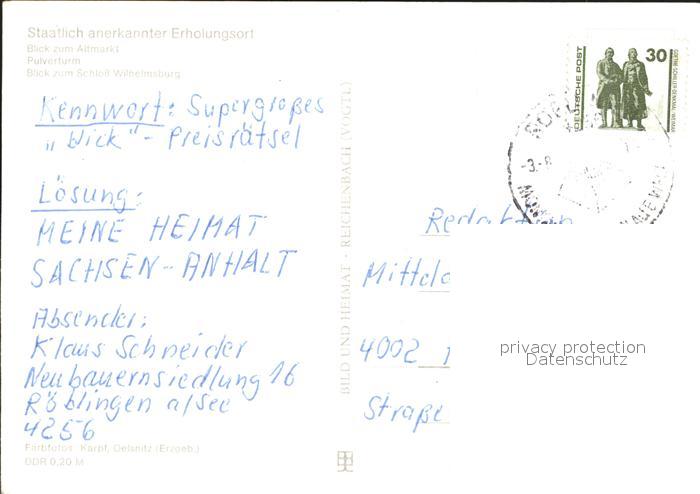 Staatlich anerkannter Erholungsort
Blick zum Altmarkt
Pulverturm
Blick zum Schloß Wilhelmsburg
Kennwort: Supergroßes
"Blick"-Preisrätsel
Lösung:
MEINE HEIMAT
SACHSEN-ANHALT
Absender:
Klaus Schneider
Neubauernsiedlung 16
Röblingen a/See
4256
Farbfotos: Karpf, Oelsnitz (Erzgeb.)
DDR 0,20 M
BILD UND HEIMAT - REICHENBACH (VOGTL)
DEUTSCHE POST
30
GOETHE-SCHILLER-DENKMAL, WEIMAR
-3.-8
Redaktion
Mitteld
4002
Straße
privacy protection
Datenschutz